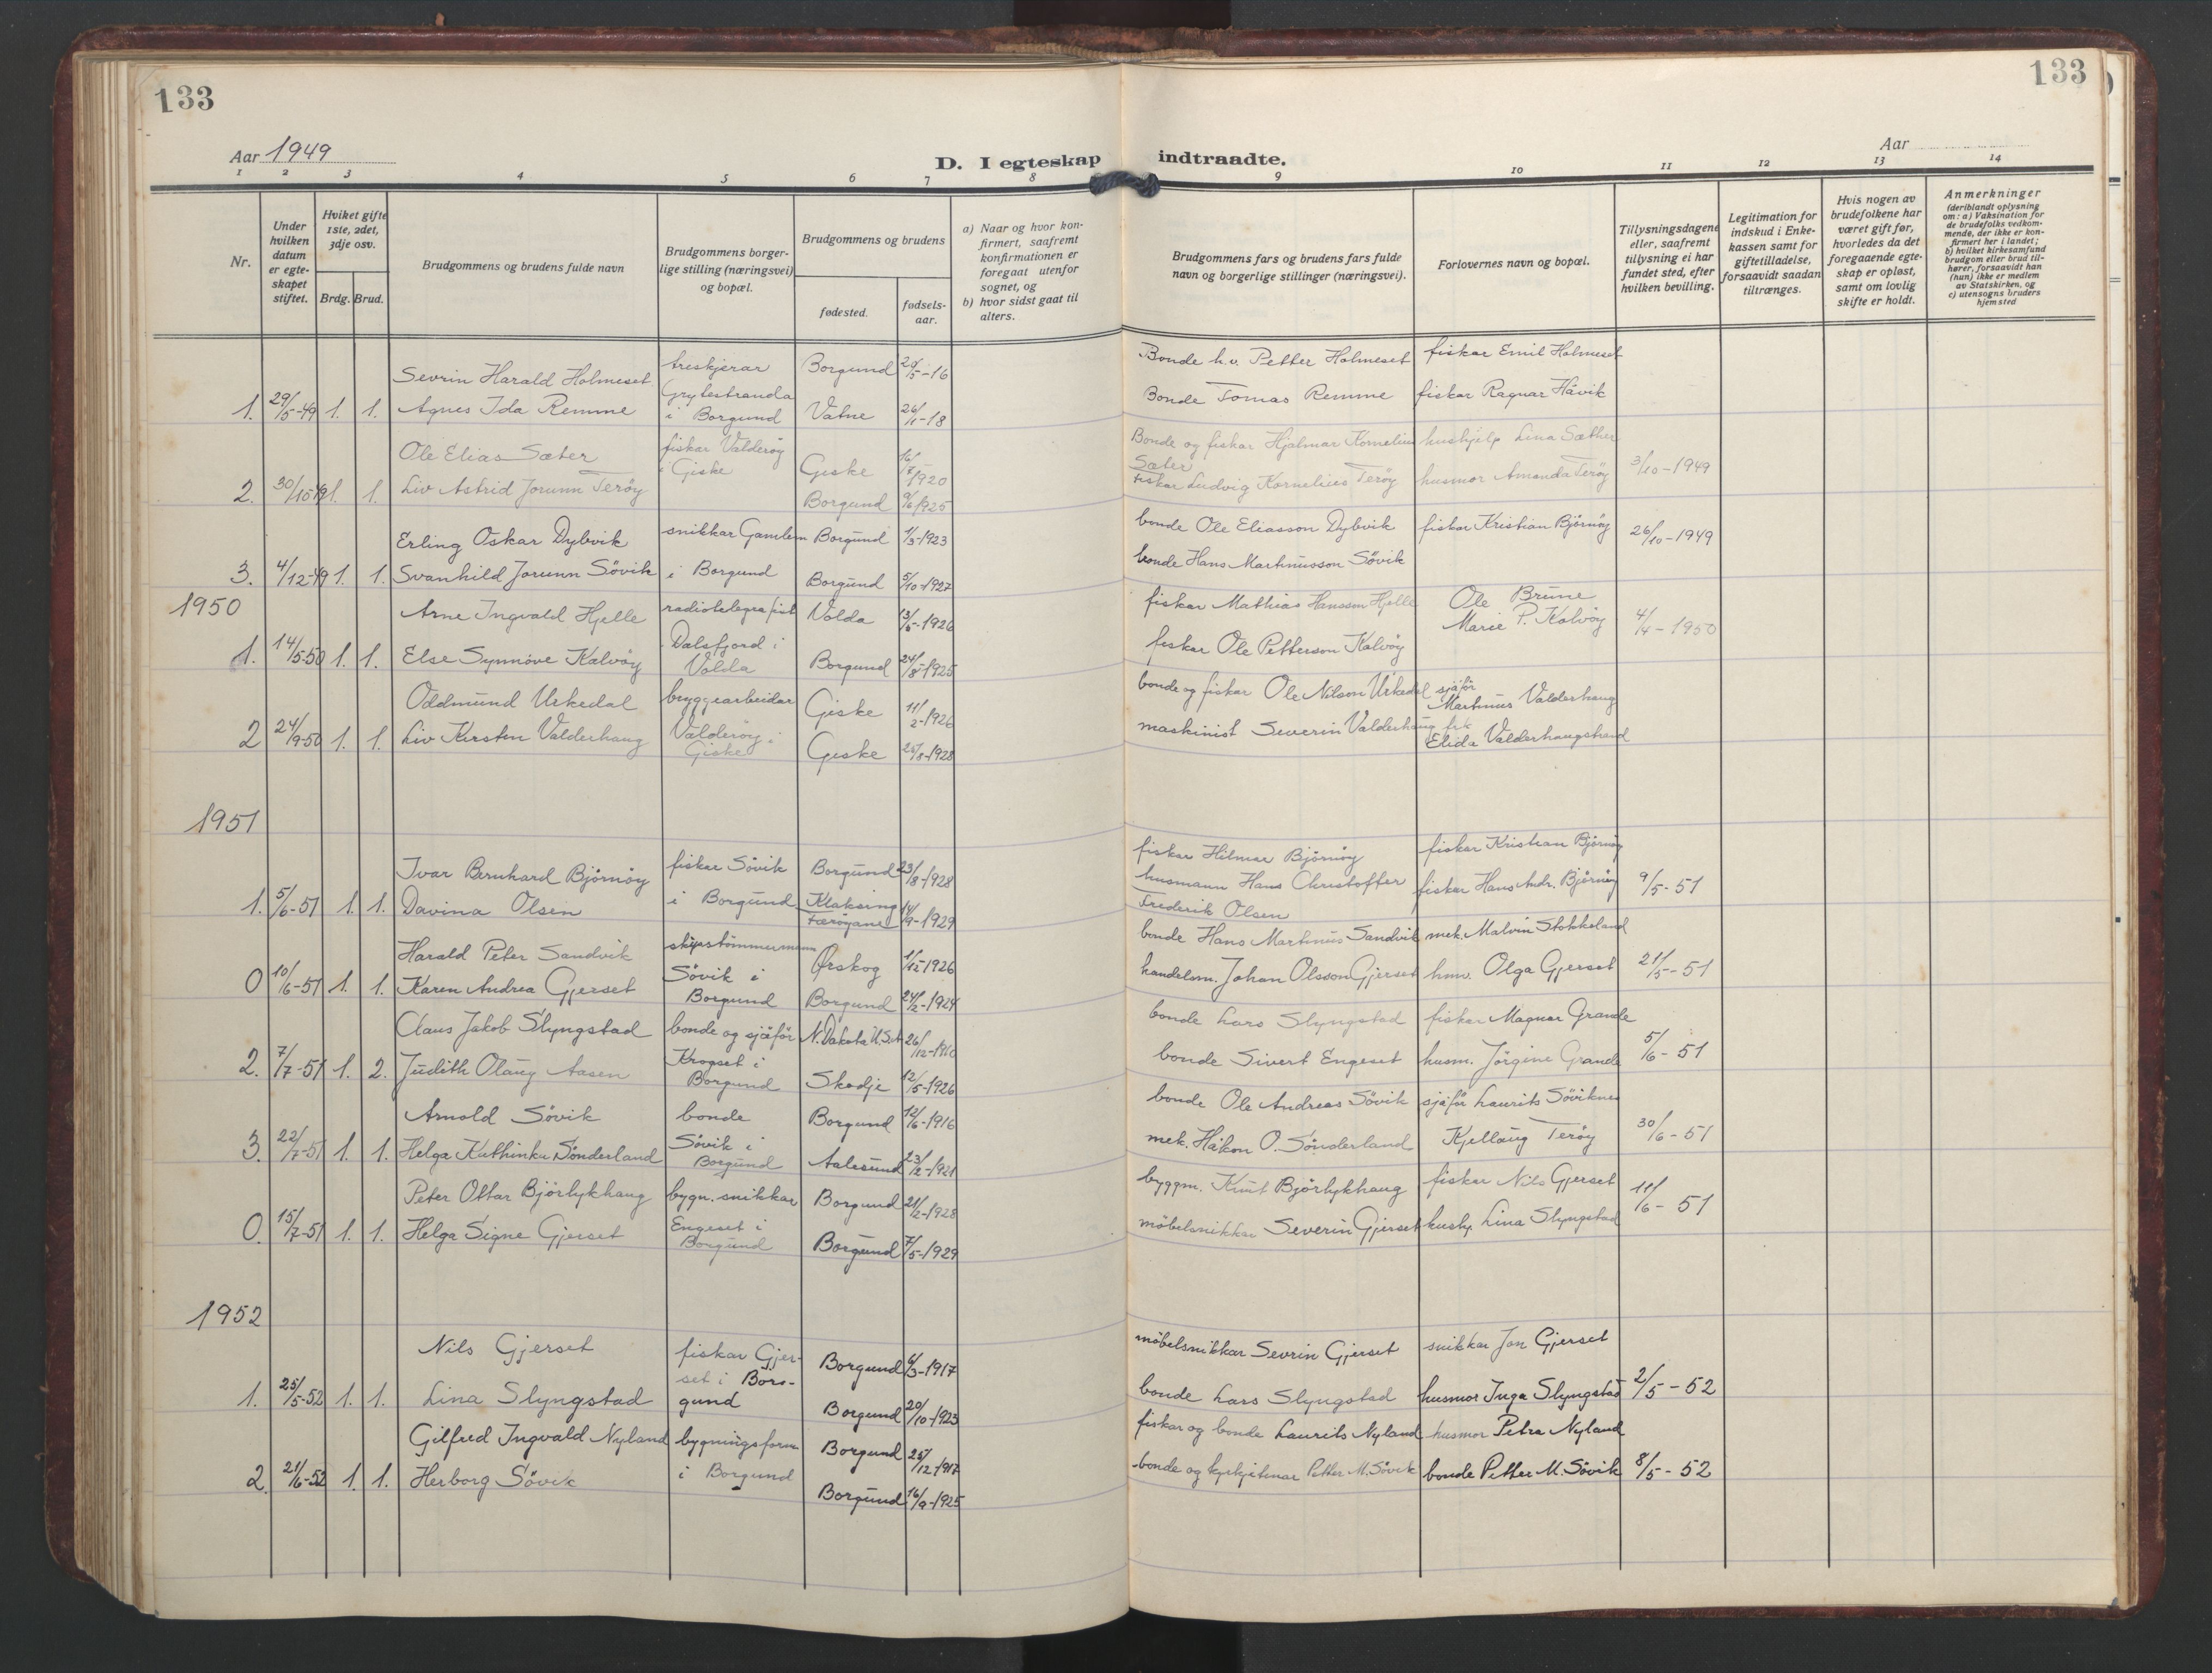 133
133
Aar 1949
D. I egteskap indtraadte.
Aar
1 2 3 4 5 6 7 8 9 10 11 12 13 14
Nr.
Under hvilken datum er egte-skapet stiftet.
Hviket gifte 1ste, 2det, 3dje osv.
Brdg. Brud.
Brudgommens og brudens fulde navn
Brudgommens borger-lige stilling (næringsvei) og bopæl.
Brudgommens og brudens
fødested.
fødsels-aar.
a) Naar og hvor kon-firmert, saafremt konfirmationen er foregaat utenfor sognet, og
b) hvor sidst gaat til alters.
Brudgommens fars og brudens fars fulde navn og borgerlige stillinger (næringsvei).
Forlovernes navn og bopæl.
Tillysningsdagene eller, saafremt tillysning ei har fundet sted, efter hvilken bevilling.
Legitimation for indskud i Enke-kassen samt for giftetilladelse, forsaavidt saadan tiltrænges.
Hvis nogen av brudefolkene har været gift før, hvorledes da det foregaaende egte-skap er opløst, samt om lovlig skifte er holdt.
Anmerkninger (deriblandt oplysning om: a) Vaksination for de brudefolks vedkom-mende, der ikke er kon-firmert her i landet; b) hvilket kirkesamfund brudgom eller brud til-hører, forsaavidt han (hun) ikke er medlem av Statskirken, og c) utensogns bruders hjemsted
Sevrin Harald Holmeset treskjerar Borgund 24/5-16 Bonde h.v. Petter Holmeset fiskar Emil Holmeset
Grytestranda
1. 29/5-49 1. 1. Agnes Ida Remme i Borgund Vatne 26/1-18 Bonde Tomas Remme fiskar Ragnar Håvik
Ole Elias Sæter fiskar Valderøy i Giske Geske 16/7-1920 Bonde og fiskar Hjalmar Kornelius Sæter hushjelp Lina Sæther
2. 30/10-49 1. 1. Liv Astrid Jorunn Terøy Borgund 9/6 1925 Fiskar Ludvig Kornelius Terøy husmor Amanda Terøy 3/10-1949
Erling Oskar Dybvik snikkar Gamlem Borgund 1/3-1923 bonde Ole Eliasson Dybvik fiskar Kristian Björnöy 26/10-1949
3. 4/12-49 1. 1. Svanhild Jorunn Sövik i Borgund Borgund 5/10-1927 bonde Hans Martinusson Sövik
1950
Arne Ingvald Hjelle radiotelegrafist Volda 13/5-1926 fiskar Mathias Hansson Hjelle Ole Brune
Dalsfjord i Marie P. Kalvöy 4/4-1950
1. 14/5-50 1. 1. Else Synnöve Kalvöy Volda Borgund 24/8-1925 fiskar Ole Petterson Kalvöy
Oddmund Urkedal bryggearbeidar Giske 11/2-1926 bonde og fiskar Ole Nilson Urkedal sjåför Martinus Valderhaug
2 24/9-50 1. 1. Liv Kirsten Valderhaug Valderöy i Giske Geske 26/8-1928 maskinist Severin Valderhaug frk Elida Valderhaugstrand
1951
Ivar Bernhard Björnöy fiskar Sövik Borgund 23/8-1928 fiskar Hilmar Björnöy fiskar Kristian Björnöy
1. 5/6-51 1. 1. Davina Olsen i Borgund Klaksing Færöyane 14/9-1929 husmann Hans Christoffer Frederik Olsen fiskar Hans Andr. Björnöy 9/5-51
Harald Peter Sandvik skipstömmermann Ørskog 1/12-1926 bonde Hans Martinus Sandvik mek. Malvin Stokkeland
0 10/6-51 1. 1. Karen Andrea Gjerset Sövik i Borgund Borgund 24/2-1924 handelsm. Johan Olsson Gjerset hmv. Olga Gjerset 21/5-51
Claus Jakob Slyngstad bonde og sjåför N. Dakota U.S.A 26/12-1910 bonde Lars Slyngstad fiskar Magnar Grande
2. 7/7-51 1. 2. Judith Olaug Aasen Krogset i Borgund Skodje 12/5-1926 bonde Sivert Engeset husm. Jörgine Grande 5/6-51
Arnold Sövik bonde Borgund 12/6-1916 bonde Ole Andreas Sövik sjåför Laurits Söviknes
3. 22/7-51 1. 1. Helga Kathinka Sönderland Sövik i Borgund Aalesund 23/2-1921 mek. Håkon O. Sönderland Kjellaug Terøy 30/6-51
Peter Ottar Björlykhaug bygn. snikkar Borgund 21/2-1928 byggm. Knut Björlykhaug fiskar Nils Gjerset
0. 15/7-51 1. 1. Helga Signe Gjerset Engeset i Borgund Borgund 7/5-1929 möbelsnikkar Severin Gjerset hushj. Lina Slyngstad 11/6-51
1952
Nils Gjerset fiskar Gjer- Borgund 6/3-1917 möbelsnikkar Sevrin Gjerset snikkar Jon Gjerset
set i Bor-
1. 25/5-52 1. 1. Lina Slyngstad gund Borgund 20/10-1923 bonde Lars Slyngstad husmor Inga Slyngstad 2/5-52
Gilfred Ingvald Nyland bygningsform Borgund 25/12-1917 fiskar og bonde Laurits Nyland husmor Petra Nyland
2. 21/6-52 1. 1. Herborg Sövik i Borgund Borgund 16/9-1925 bonde og kyrkjetenar Petter M. Sövik bonde Petter M. Sövik 8/5-52